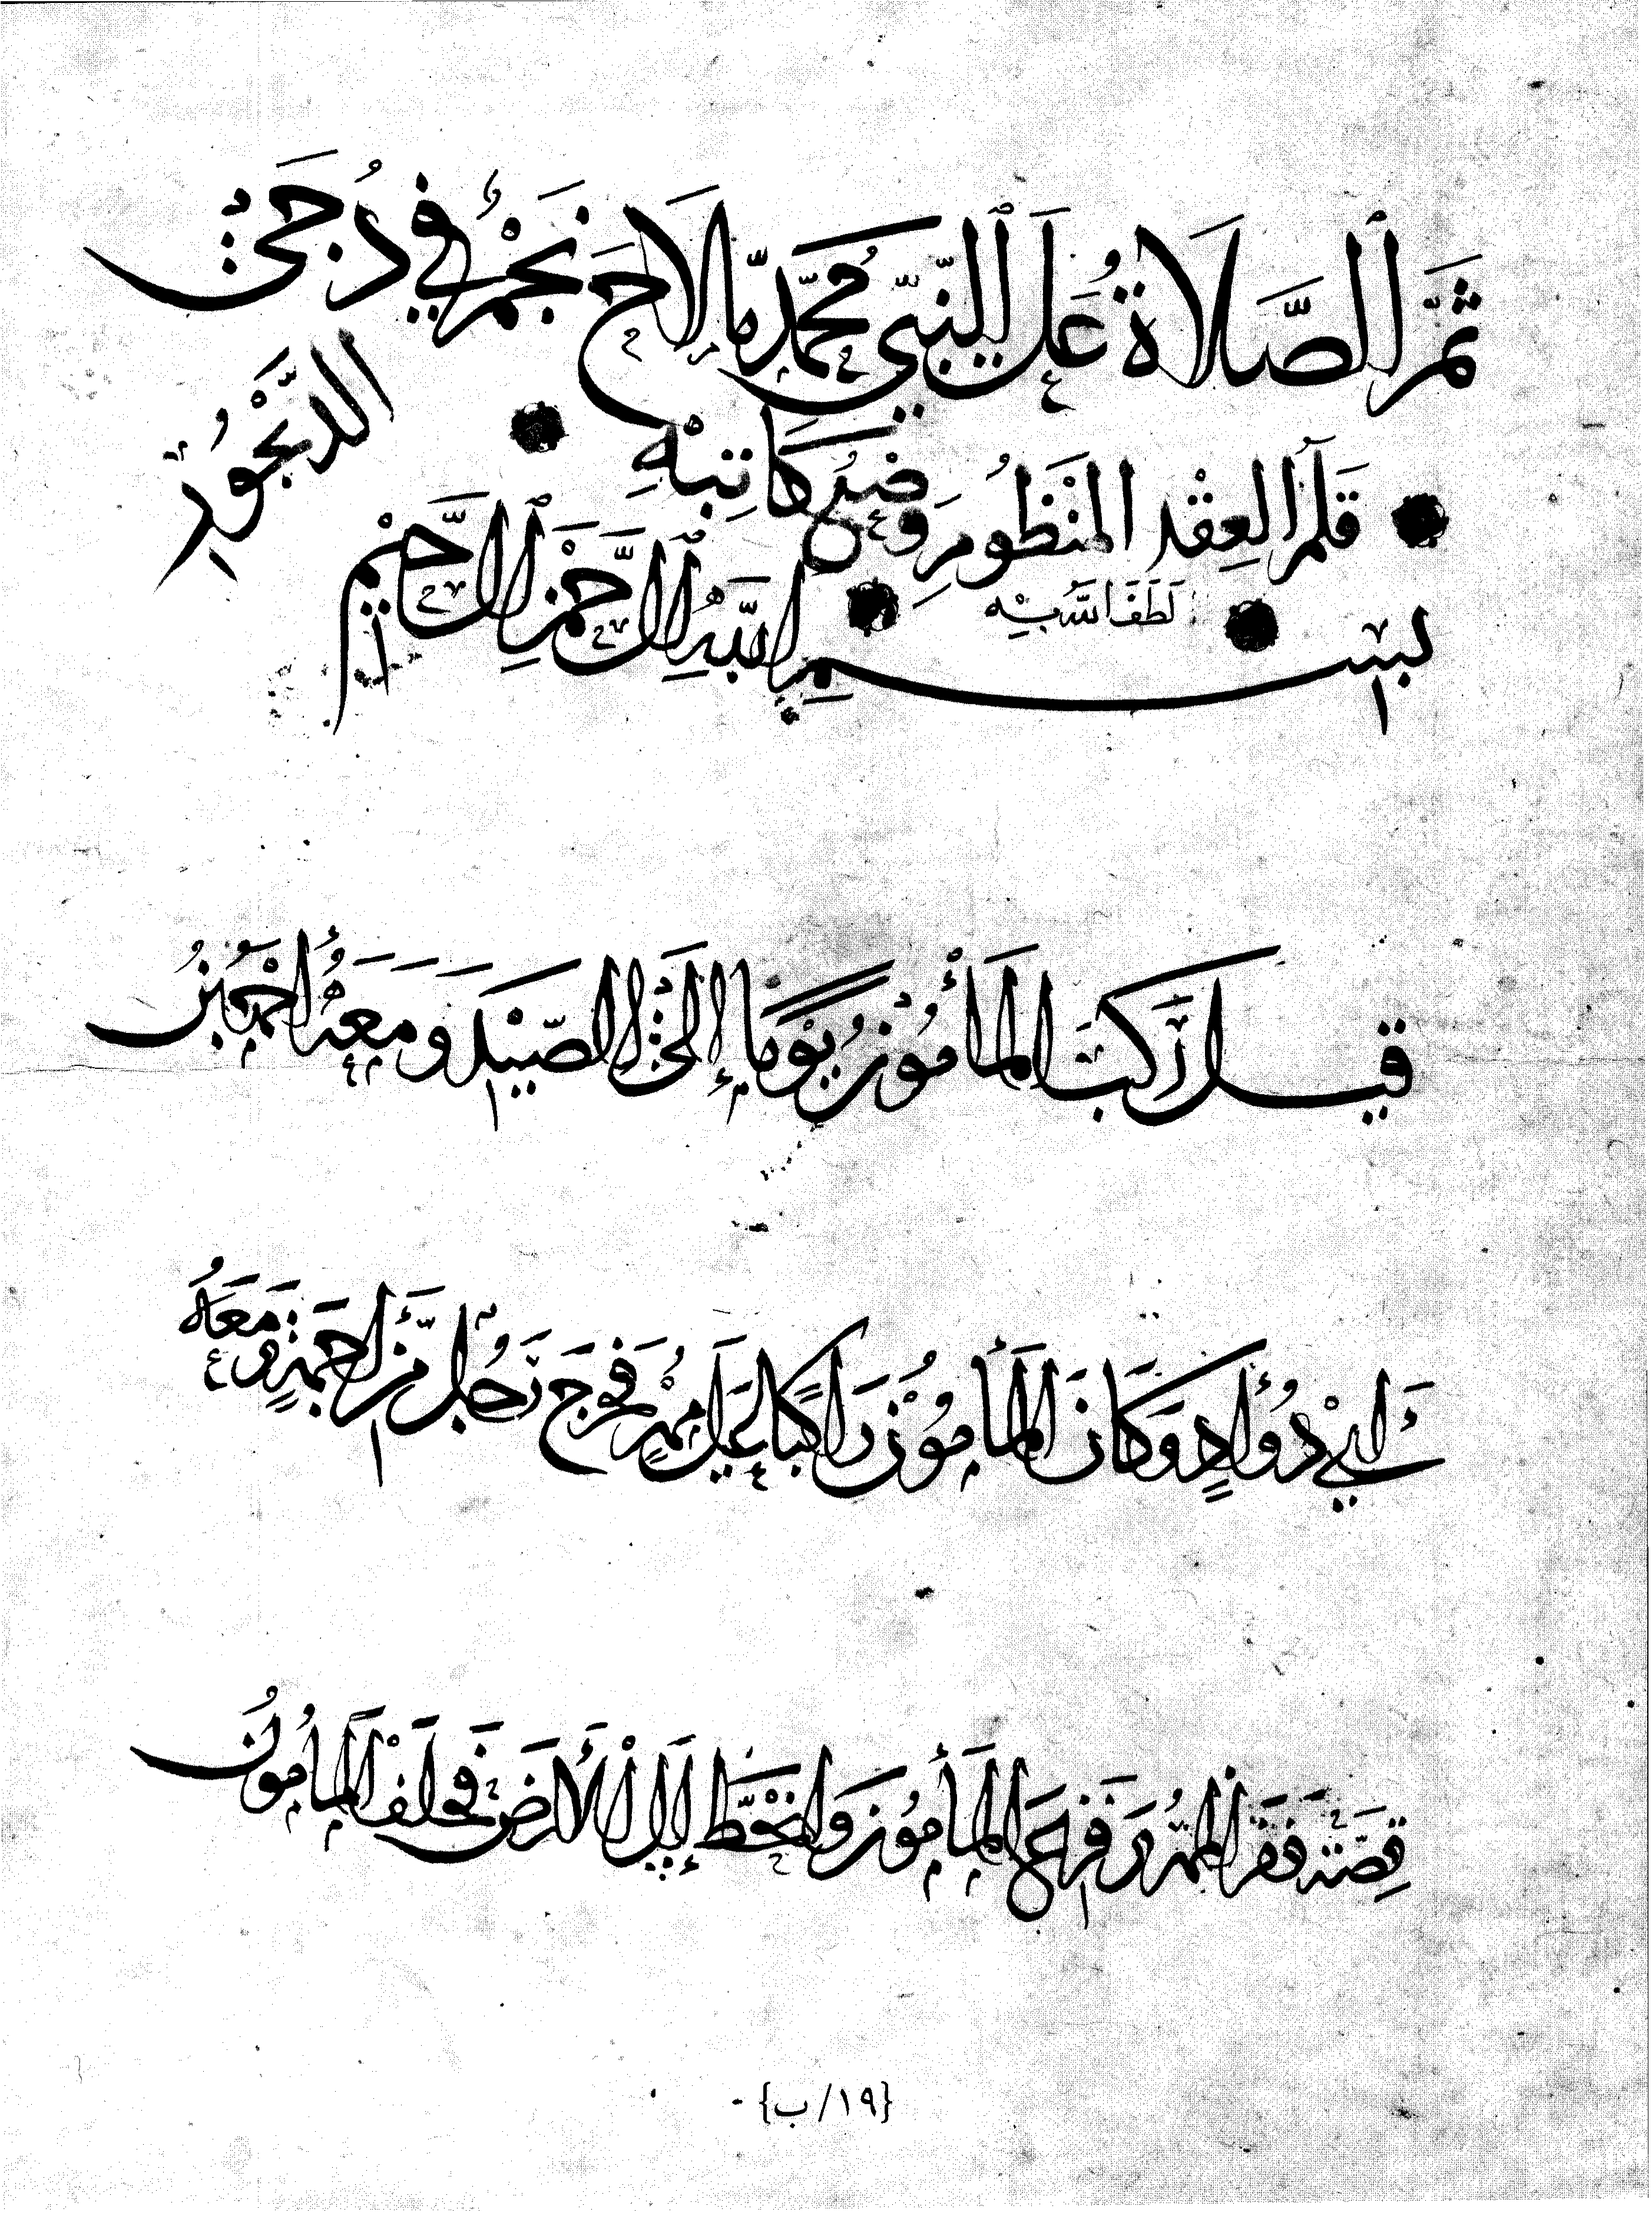 ثُمَّ الصَّلَاةُ عَلَى النَّبِيِّ مُحَمَّدٍ مَا لَاحَ نَجْمٌ فِي دُجَى
الدَّيْجُورِ
قلم العِقْد المَنْظُومِ وَضْعُ كَاتِبِهِ
لَطَفَ اللهُ بِهِ
بِسْمِ اللهِ الرَّحْمٰنِ الرَّحِيْمِ
قيل رَكِبَ المَأْمُوْنُ يَوْمًا إِلَى الصَّيْدِ وَمَعَهُ أَحْمَدُ بْنُ
أَبِيْ دُؤَادٍ وَكَانَ المَأْمُوْنُ رَاكِبًا عَلَى مُهْرٍ فَخَرَجَ رَجُلٌ مِّنَ أَجَمَةٍ وَمَعَهُ
قِصَّةٌ فَنَفَرَ المُهْرُ مِنَ المَأْمُوْنُ وَانْحَطَّ إِلَى الْأَرْضِ فَحَلَفَ المَأْمُونُ
{١٩/ب}